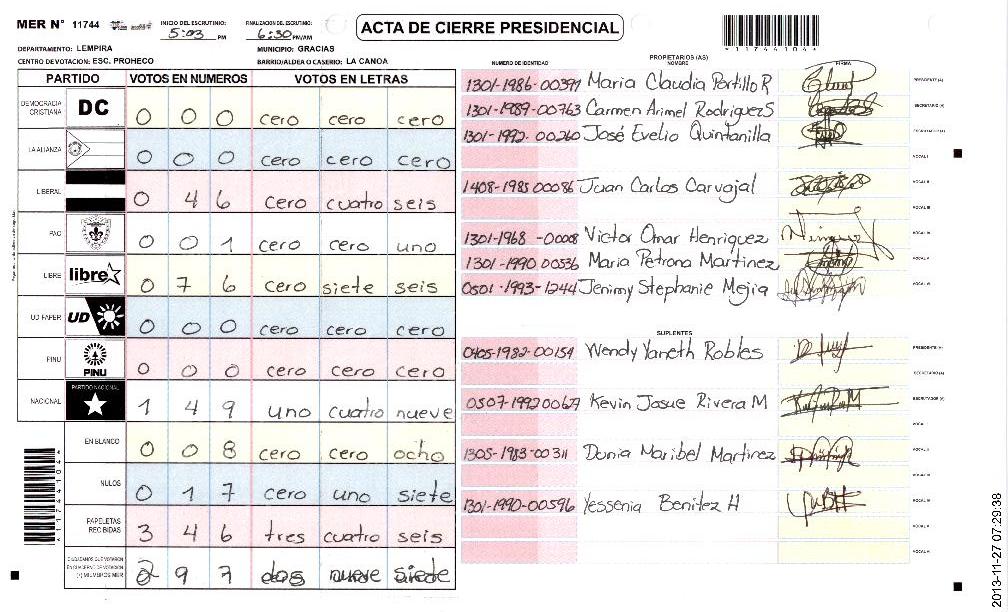 MER N° 11744
INICIO DEL ESCRUTINIO: 5:03 PM
FINALIZACION DEL ESCRUTINIO: 6:30 PM/AM
ACTA DE CIERRE PRESIDENCIAL
*11744104*
DEPARTAMENTO: LEMPIRA
MUNICIPIO: GRACIAS
CENTRO DE VOTACION: ESC. PROHECO
BARRIO/ALDEA O CASERIO: LA CANOA
PARTIDO VOTOS EN NUMEROS VOTOS EN LETRAS
DEMOCRACIA CRISTIANA DC 0 0 0 cero cero cero
LA ALIANZA 0 0 0 cero cero cero
LIBERAL 0 4 6 cero cuatro seis
PAC 0 0 1 cero cero uno
LIBRE libre 0 7 6 cero siete seis
UD FAPER UD 0 0 0 cero cero cero
PINU PINU 0 0 0 cero cero cero
NACIONAL PARTIDO NACIONAL 1 4 9 uno cuatro nueve
EN BLANCO 0 0 8 cero cero ocho
NULOS 0 1 7 cero uno siete
PAPELETAS RECIBIDAS 3 4 6 tres cuatro seis
CIUDADANOS QUE VOTARON EN CUADERNO DE VOTACION (+) MIEMBROS MER 2 9 7 dos nueve siete
PROPIETARIOS (AS)
NUMERO DE IDENTIDAD NOMBRE FIRMA
1301-1986-00391 Maria Claudia Portillo R PRESIDENTE (A)
1301-1989-00763 Carmen Arimel Rodriguez S SECRETARIO (A)
1301-1992-00260 José Evelio Quintanilla ESCRUTADOR (A)
VOCAL I
1408-1985 00086 Juan Carlos Carvajal VOCAL II
VOCAL III
1301-1968-00008 Victor Omar Henriquez VOCAL IV
1301-1990 00536 Maria Petrona Martinez VOCAL V
0501-1993-1244 Jenimy Stephanie Mejia VOCAL VI
SUPLENTES
0405-1982-00154 Wendy Yaneth Robles PRESIDENTE (A)
SECRETARIO (A)
0507-1992 00627 Kevin Josue Rivera M ESCRUTADOR (A)
VOCAL I
1305-1983-00311 Dunia Maribel Martinez VOCAL II
VOCAL III
1301-1990-00596 Yessenia Benitez H VOCAL IV
VOCAL V
VOCAL VI
2013-11-27 07:29:38